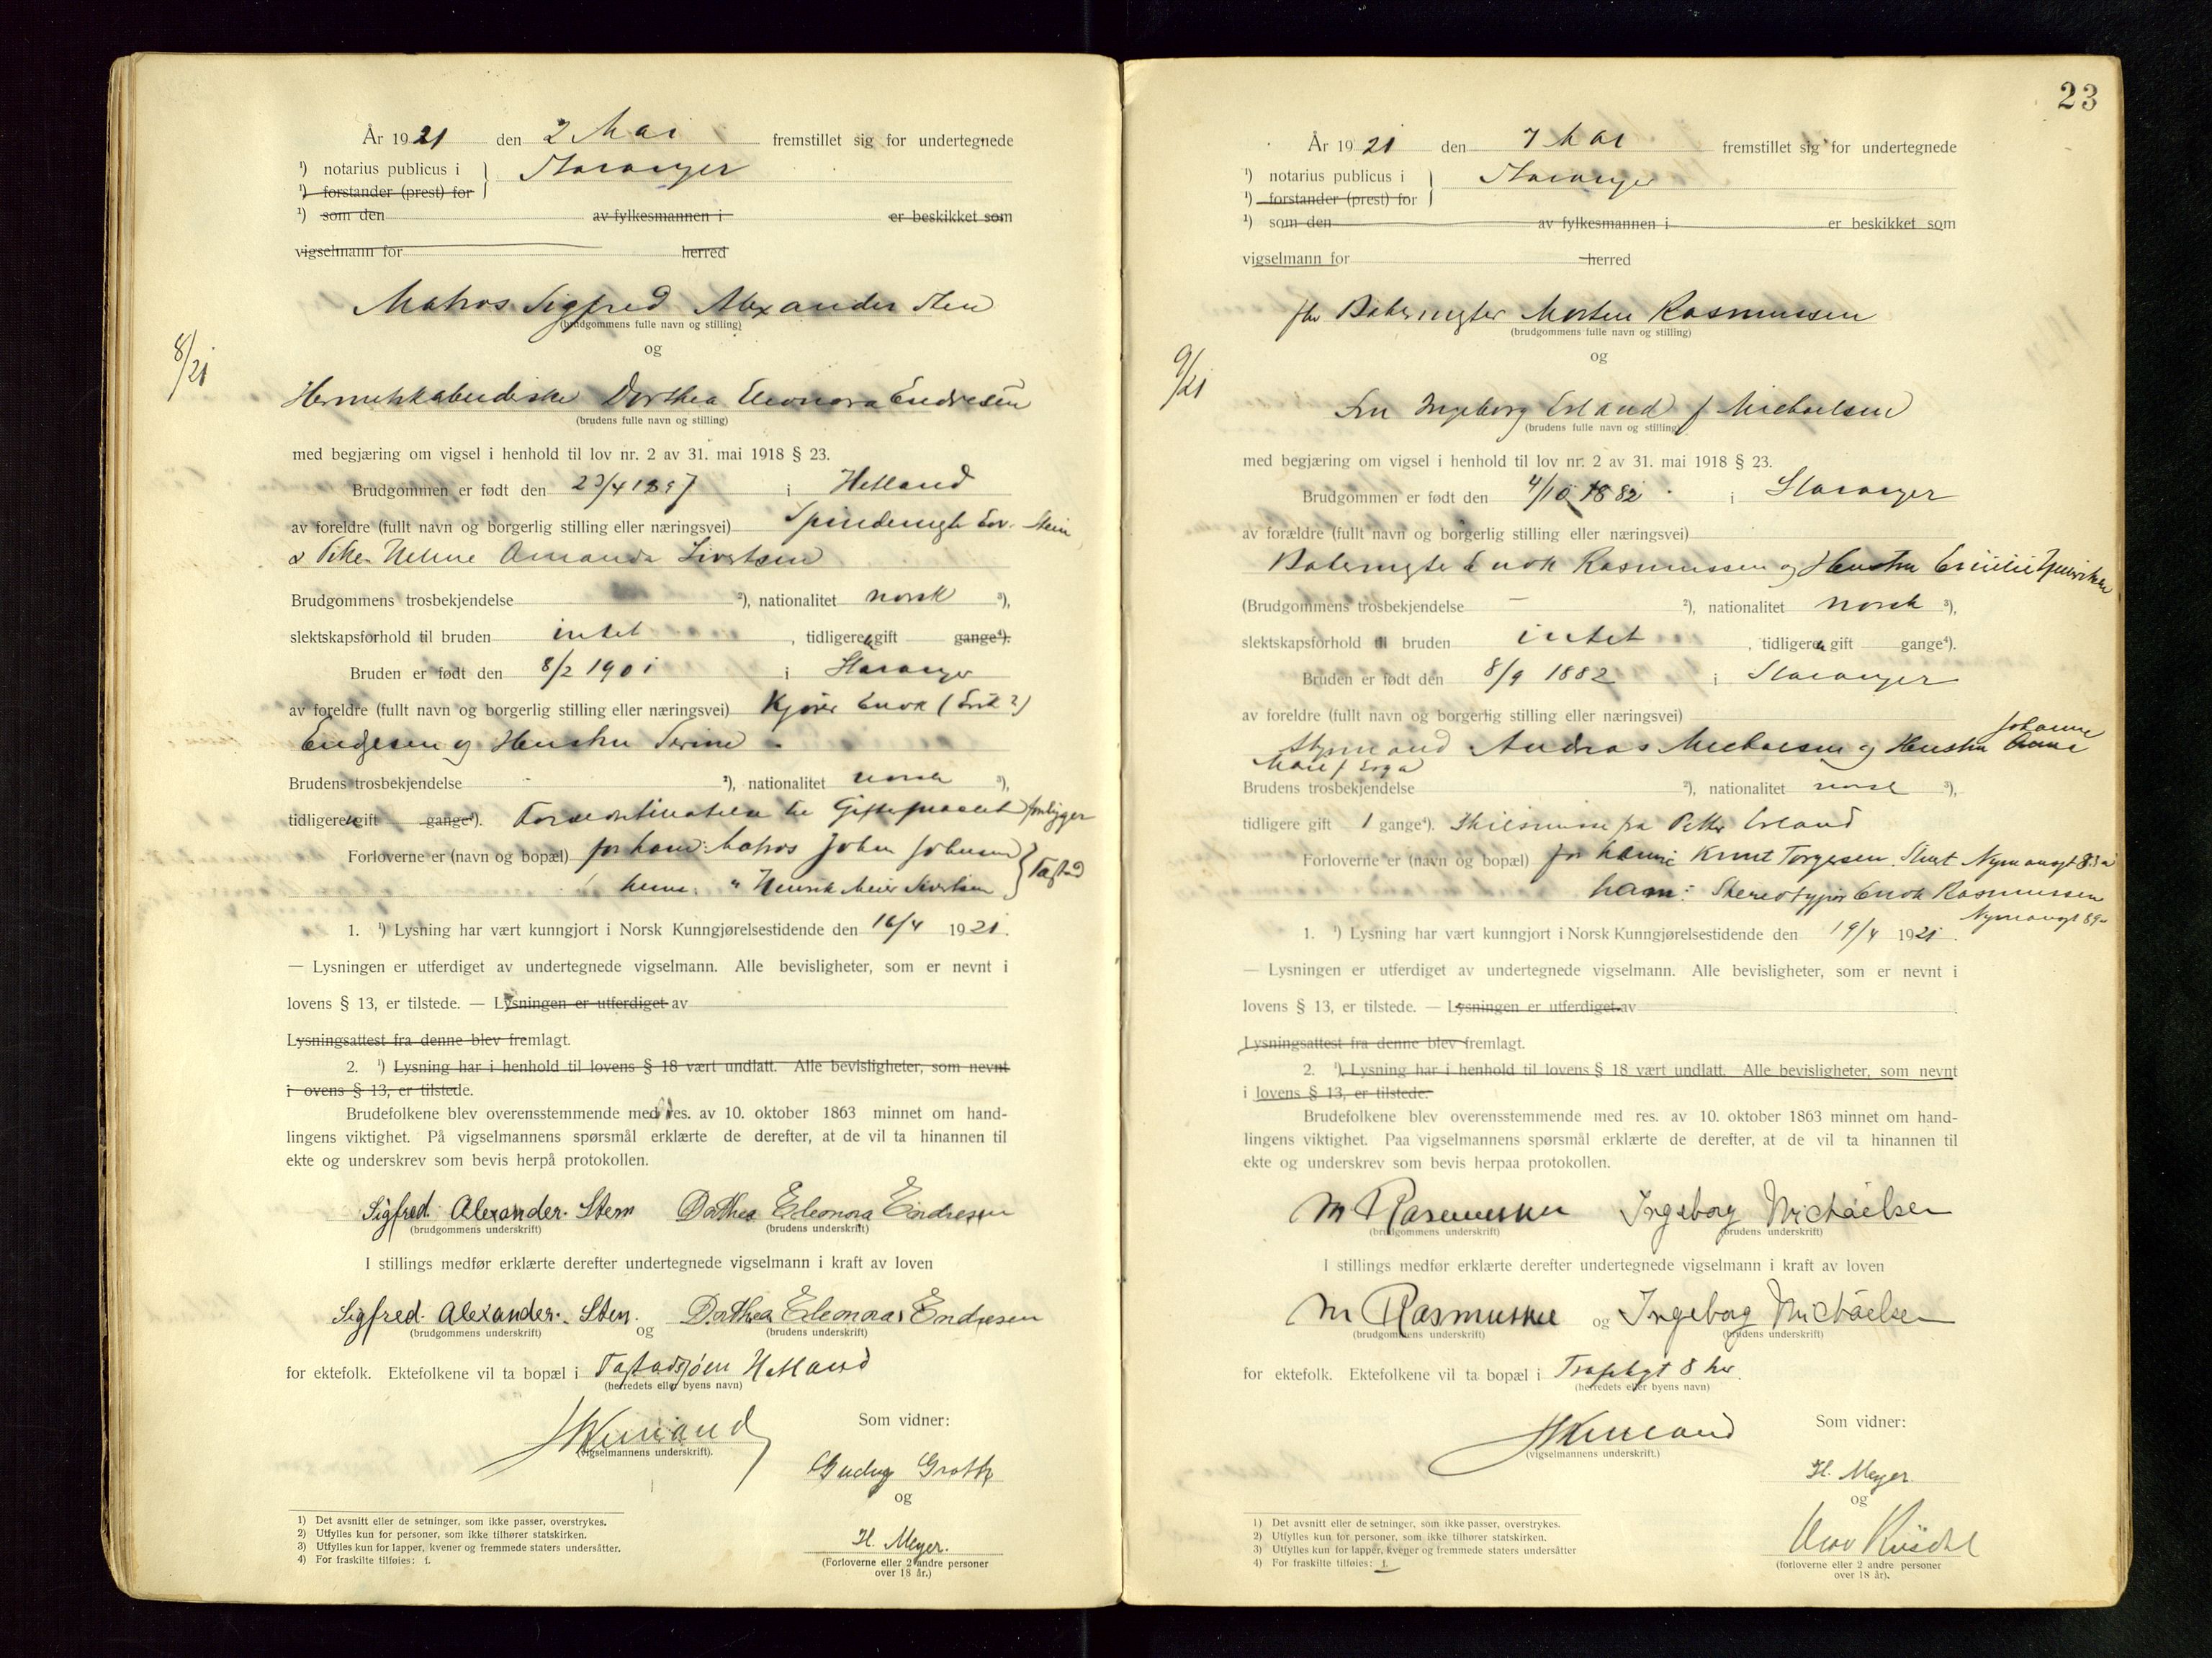 År 1921 den 2 Mai fremstillet sig for undertegnede
¹) notarius publicus i } Stavanger
¹) forstander (prest) for
¹) som den av fylkesmannen i er beskikket som
vigselmann for herred
Matros Sigfred Alexander Sten
(brudgommens fulle navn og stilling)
og
8/21
Hermetikkabeiderske Dorthea Eleonora Endresen
(brudens fulle navn og stilling)
med begjæring om vigsel i henhold til lov nr. 2 av 31. mai 1918 § 23.
Brudgommen er født den 23/4 1897 i Hetland
av foreldre (fullt navn og borgerlig stilling eller næringsvei) Stein
& Pike Amanda Sivertsen
Brudgommens trosbekjendelse ²), nationalitet norsk ³),
slektskapsforhold til bruden intet , tidligere gift gange⁴).
Bruden er født den 8/2 1901 i Stavanger
av foreldre (fullt navn og borgerlig stilling eller næringsvei) Kjører Enok (Erik?)
Endresen og Hustru Serine
Brudens trosbekjendelse - ²), nationalitet norsk ³),
tidligere gift gange⁴). til Giftermaalet foreligger
Forloverne er (navn og bopæl) for ham: Matros John Johnsen } Tastad
henne: " Henrik Meier Sivertsen
1. ¹) Lysning har vært kunngjort i Norsk Kunngjørelsestidende den 16/4 1921.
— Lysningen er utferdiget av undertegnede vigselmann. Alle bevisligheter, som er nevnt i
lovens § 13, er tilstede. — Lysningen er utferdiget av
Lysningsattest fra denne blev fremlagt.
2. ¹) Lysning har i henhold til lovens § 18 vært undlatt. Alle bevisligheter, som nevnt
i ovens § 13, er tilstede.
Brudefolkene blev overensstemmende med res. av 10. oktober 1863 minnet om hand-
lingens viktighet. På vigselmannens spørsmål erklærte de derefter, at de vil ta hinannen til
ekte og underskrev som bevis herpå protokollen.
Sigfred. Alexander. Sten Dorthea Eleonora Endresen
(brudgommens underskrift) (brudens underskrift)
I stillings medfør erklærte derefter undertegnede vigselmann i kraft av loven
Sigfred. Alexander. Sten. og Dorthea Eleonora Endresen
(brudgommens underskrift) (brudens underskrift)
for ektefolk. Ektefolkene vil ta bopæl i Tastadsjøen Hetland
(herredets eller byens navn)
(vigselmannens underskrift).
Som vidner:
Gudny Groth
og
H. Meyer.
(Forloverne eller 2 andre personer
over 18 år.)
1) Det avsnitt eller de setninger, som ikke passer, overstrykes.
2) Utfylles kun for personer, som ikke tilhører statskirken.
3) Utfylles kun for lapper, kvener og fremmede staters undersåtter.
4) For fraskilte tilføies: f.
23
År 1921 den 7 Mai fremstillet sig for undertegnede
¹) notarius publicus i } Stavanger
¹) forstander (prest) for
¹) som den av fylkesmannen i er beskikket som
vigselmann for herred
fhv Morten Rasmussen
(brudgommens fulle navn og stilling)
og
9/21
Fru Ingeborg Erland f Michaelsen
(brudens fulle navn og stilling)
med begjæring om vigsel i henhold til lov nr. 2 av 31. mai 1918 § 23.
Brudgommen er født den 4/10 1882 i Stavanger
av forældre (fullt navn og borgerlig stilling eller næringsvei)
Enok Rasmussen og Hustru
(Brudgommens trosbekjendelse — ²), nationalitet norsk ³),
slektskapsforhold til bruden intet , tidligere gift gange⁴).
Bruden er født den 8/9 1882 i Stavanger
av foreldre (fullt navn og borgerlig stilling eller næringsvei)
Styrmand Andreas Michaelsen og Hustru Anne Johanne
Marie f
Brudens trosbekjendelse ²), nationalitet norsk ³),
tidligere gift 1 gange⁴). Skilsmisse fra Petter Erland
Forloverne er (navn og bopæl) for henne Knut Torgersen. Nymansgt 83a
ham: Stereotypør Enok Rasmussen
Nymansgt 89
1. ¹) Lysning har vært kunngjort i Norsk Kunngjørelsestidende den 19/4 1921.
— Lysningen er utferdiget av undertegnede vigselmann. Alle bevisligheter, som er nevnt i
lovens § 13, er tilstede. — Lysningen er utferdiget av
Lysningsattest fra denne blev fremlagt.
2. ¹) Lysning har i henhold til lovens § 18 vært undlatt. Alle bevisligheter, som nevnt
i lovens § 13, er tilstede.
Brudefolkene blev overensstemmende med res. av 10. oktober 1863 minnet om hand-
lingens viktighet. Paa vigselmannens spørsmål erklærte de derefter, at de vil ta hinannen til
ekte og underskrev som bevis herpaa protokollen.
M Rasmussen Ingeborg Michaelsen
(brudgommens underskrift) (brudens underskrift)
I stillings medfør erklærte derefter undertegnede vigselmann i kraft av loven
M Rasmussen og Ingeborg Michaelsen
(brudgommens underskrift) (brudens underskrift)
for ektefolk. Ektefolkene vil ta bopæl i 8 her.
(herredets eller byens navn)
(vigselmannens underskrift.)
Som vidner:
H. Meyer.
og
(forloverne eller 2 andre personer
over 18 år).
1) Det avsnitt eller de setninger, som ikke passer, overstrykes.
2) Utfylles kun for personer, som ikke tilhører statskirken.
3) Utfylles kun for lapper, kvener og fremmede staters undersåtter
4) For fraskilte tilføies: f.